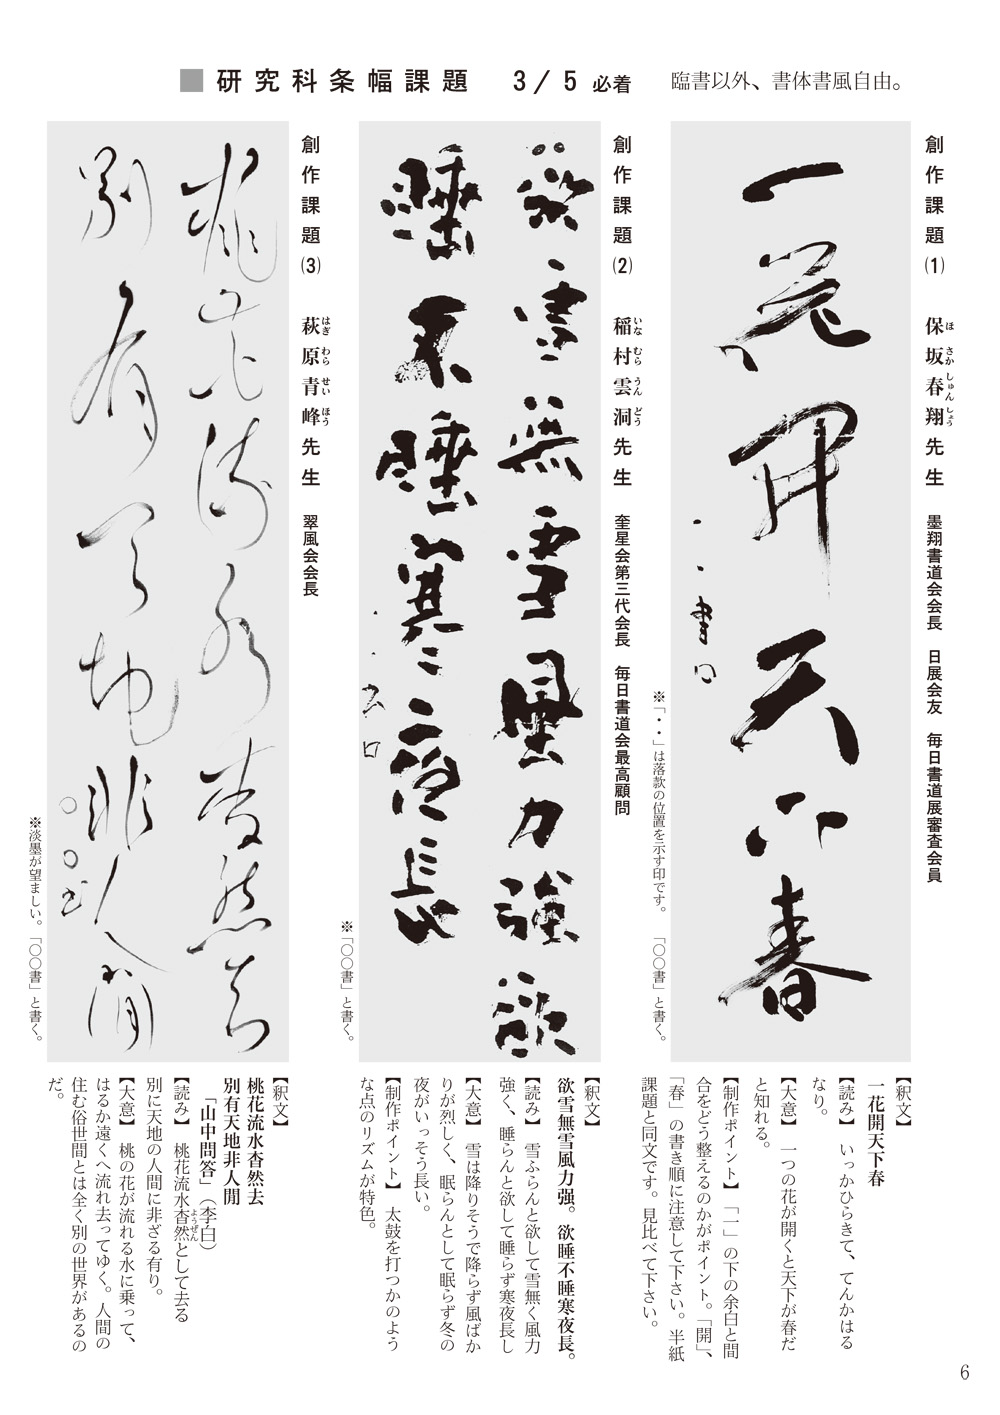 ■研究科条幅課題　3/5 必着　臨書以外、書体書風自由。
創作課題(1)　保坂春翔先生　墨翔書道会会長　日展会友　毎日書道展審査会員
ほ さか しゅん しょう
一花開天下春
・・書□
※「・・」は落款の位置を示す印です。　「〇〇書」と書く。
【釈文】
一花開天下春
【読み】　いっかひらきて、てんかはる
なり。
【大意】　一つの花が開くと天下が春だ
と知れる。
【制作ポイント】　「一」の下の余白と間
合をどう整えるのかがポイント。「開」、
「春」の書き順に注意して下さい。半紙
課題と同文です。見比べて下さい。
創作課題(2)　稲村雲洞先生　奎星会第三代会長　毎日書道会最高顧問
いな むら うん どう
欲雪無雪風力強欲
睡不睡寒夜長
※「〇〇書」と書く。
【釈文】
欲雪無雪風力強。欲睡不睡寒夜長。
【読み】　雪ふらんと欲して雪無く風力
強く、睡らんと欲して睡らず寒夜長し
【大意】　雪は降りそうで降らず風ばか
りが烈しく、眠らんとして眠らず冬の
夜がいっそう長い。
【制作ポイント】　太鼓を打つかのよう
な点のリズムが特色。
創作課題(3)　萩原青峰先生　翠風会会長
はぎ わら せい ほう
桃花流水杳然去
別有天地非人間
〇〇書
※淡墨が望ましい。「〇〇書」と書く。
【釈文】
桃花流水杳然去
別有天地非人間
「山中問答」（李白）
【読み】　桃花流水杳然として去る
ようぜん
別に天地の人間に非ざる有り。
【大意】　桃の花が流れる水に乗って、
はるか遠くへ流れ去ってゆく。人間の
住む俗世間とは全く別の世界があるの
だ。
6